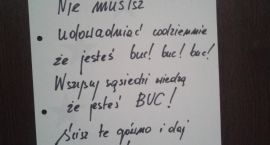 Nie musisz
udowadniać codziennie
że jesteś buc! buc! buc!
Wszyscy sąsiedzi wiedzą
że jesteś BUC!
Ścisz te gówno i daj